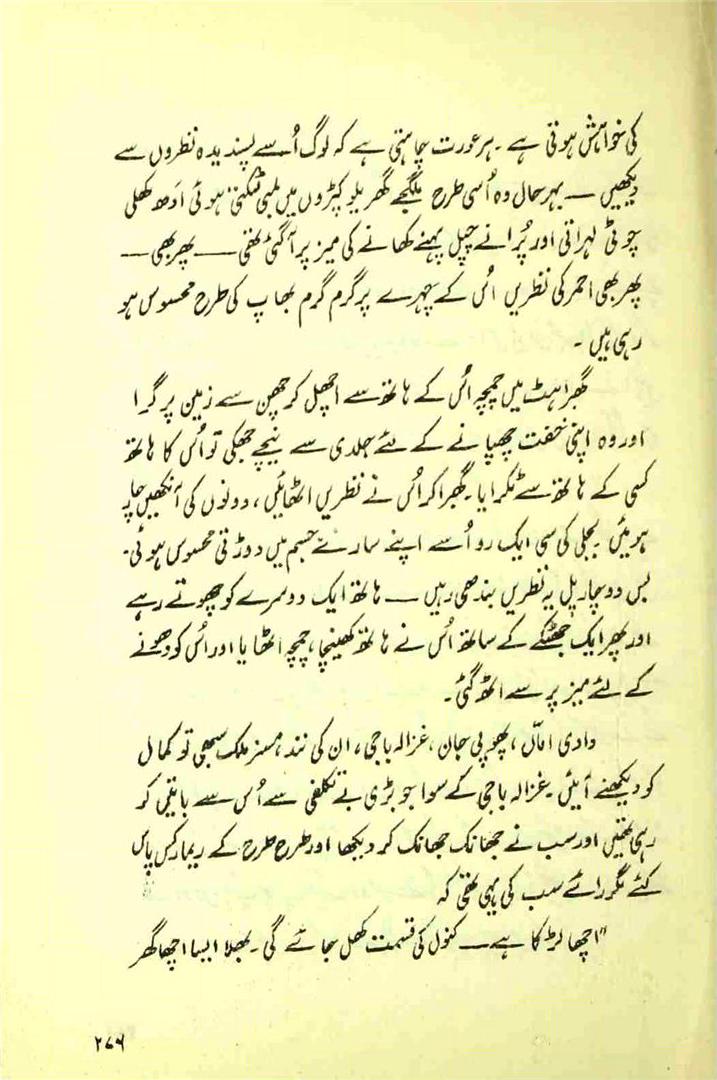 کی خواہش ہوتی ہے ۔ ہر عورت چاہتی ہے کہ لوگ اُسے پسندیدہ نظروں سے
دیکھیں — بہرحال وہ اُسی طرح ملگجے گھریلو کپڑوں میں لمبی ٹکتی ہوئی اَدھ کھلی
چوٹی لہراتی اور پُرانے چپل پہنے کھانے کی میز پر آ گئی تھی — پھر بھی —
پھر بھی احمر کی نظریں اُس کے چہرے پر گرم گرم بھاپ کی طرح محسوس ہو
رہی ہیں ۔
گھبراہٹ میں چمچہ اُس کے ہاتھ سے اچھل کر چھن سے زمین پر گرا
اور وہ اپنی خفت چھپانے کے لئے جلدی سے نیچے جھکی تو اُس کا ہاتھ
کسی کے ہاتھ سے ٹکرایا ۔ گھبرا کر اُس نے نظریں اٹھائیں ، دونوں کی آنکھیں چار
ہوئیں بجلی کی سی ایک رو اُسے اپنے سارے جسم میں دوڑتی محسوس ہوئی ۔
بس دو چار پل یہ نظریں بندھی رہیں — ہاتھ ایک دوسرے کو چھوتے رہے
اور پھر ایک جھٹکے کے ساتھ اُس نے ہاتھ کھینچا ، چمچہ اٹھایا اور اُس کو دھونے
کے لئے میز پر سے اٹھ گئی ۔
دادی اماّں ، پھوپی جان ، غزالہ باجی ، ان کی نند ، مسز ملک سبھی تو کمال
کو دیکھنے آئیں ۔ غزالہ باجی کے سوا جو بڑی بے تکلفی سے اُس سے باتیں کر
رہی تھیں اور سب نے جھانک جھانک کر دیکھا اور طرح طرح کے ریمارکس پاس
کئے مگر رائے سب کی یہی تھی کہ
"اچھا لڑکا ہے — کنول کی قسمت کھل جائے گی ۔ بھلا ایسا اچھا گھر
۲۷۶